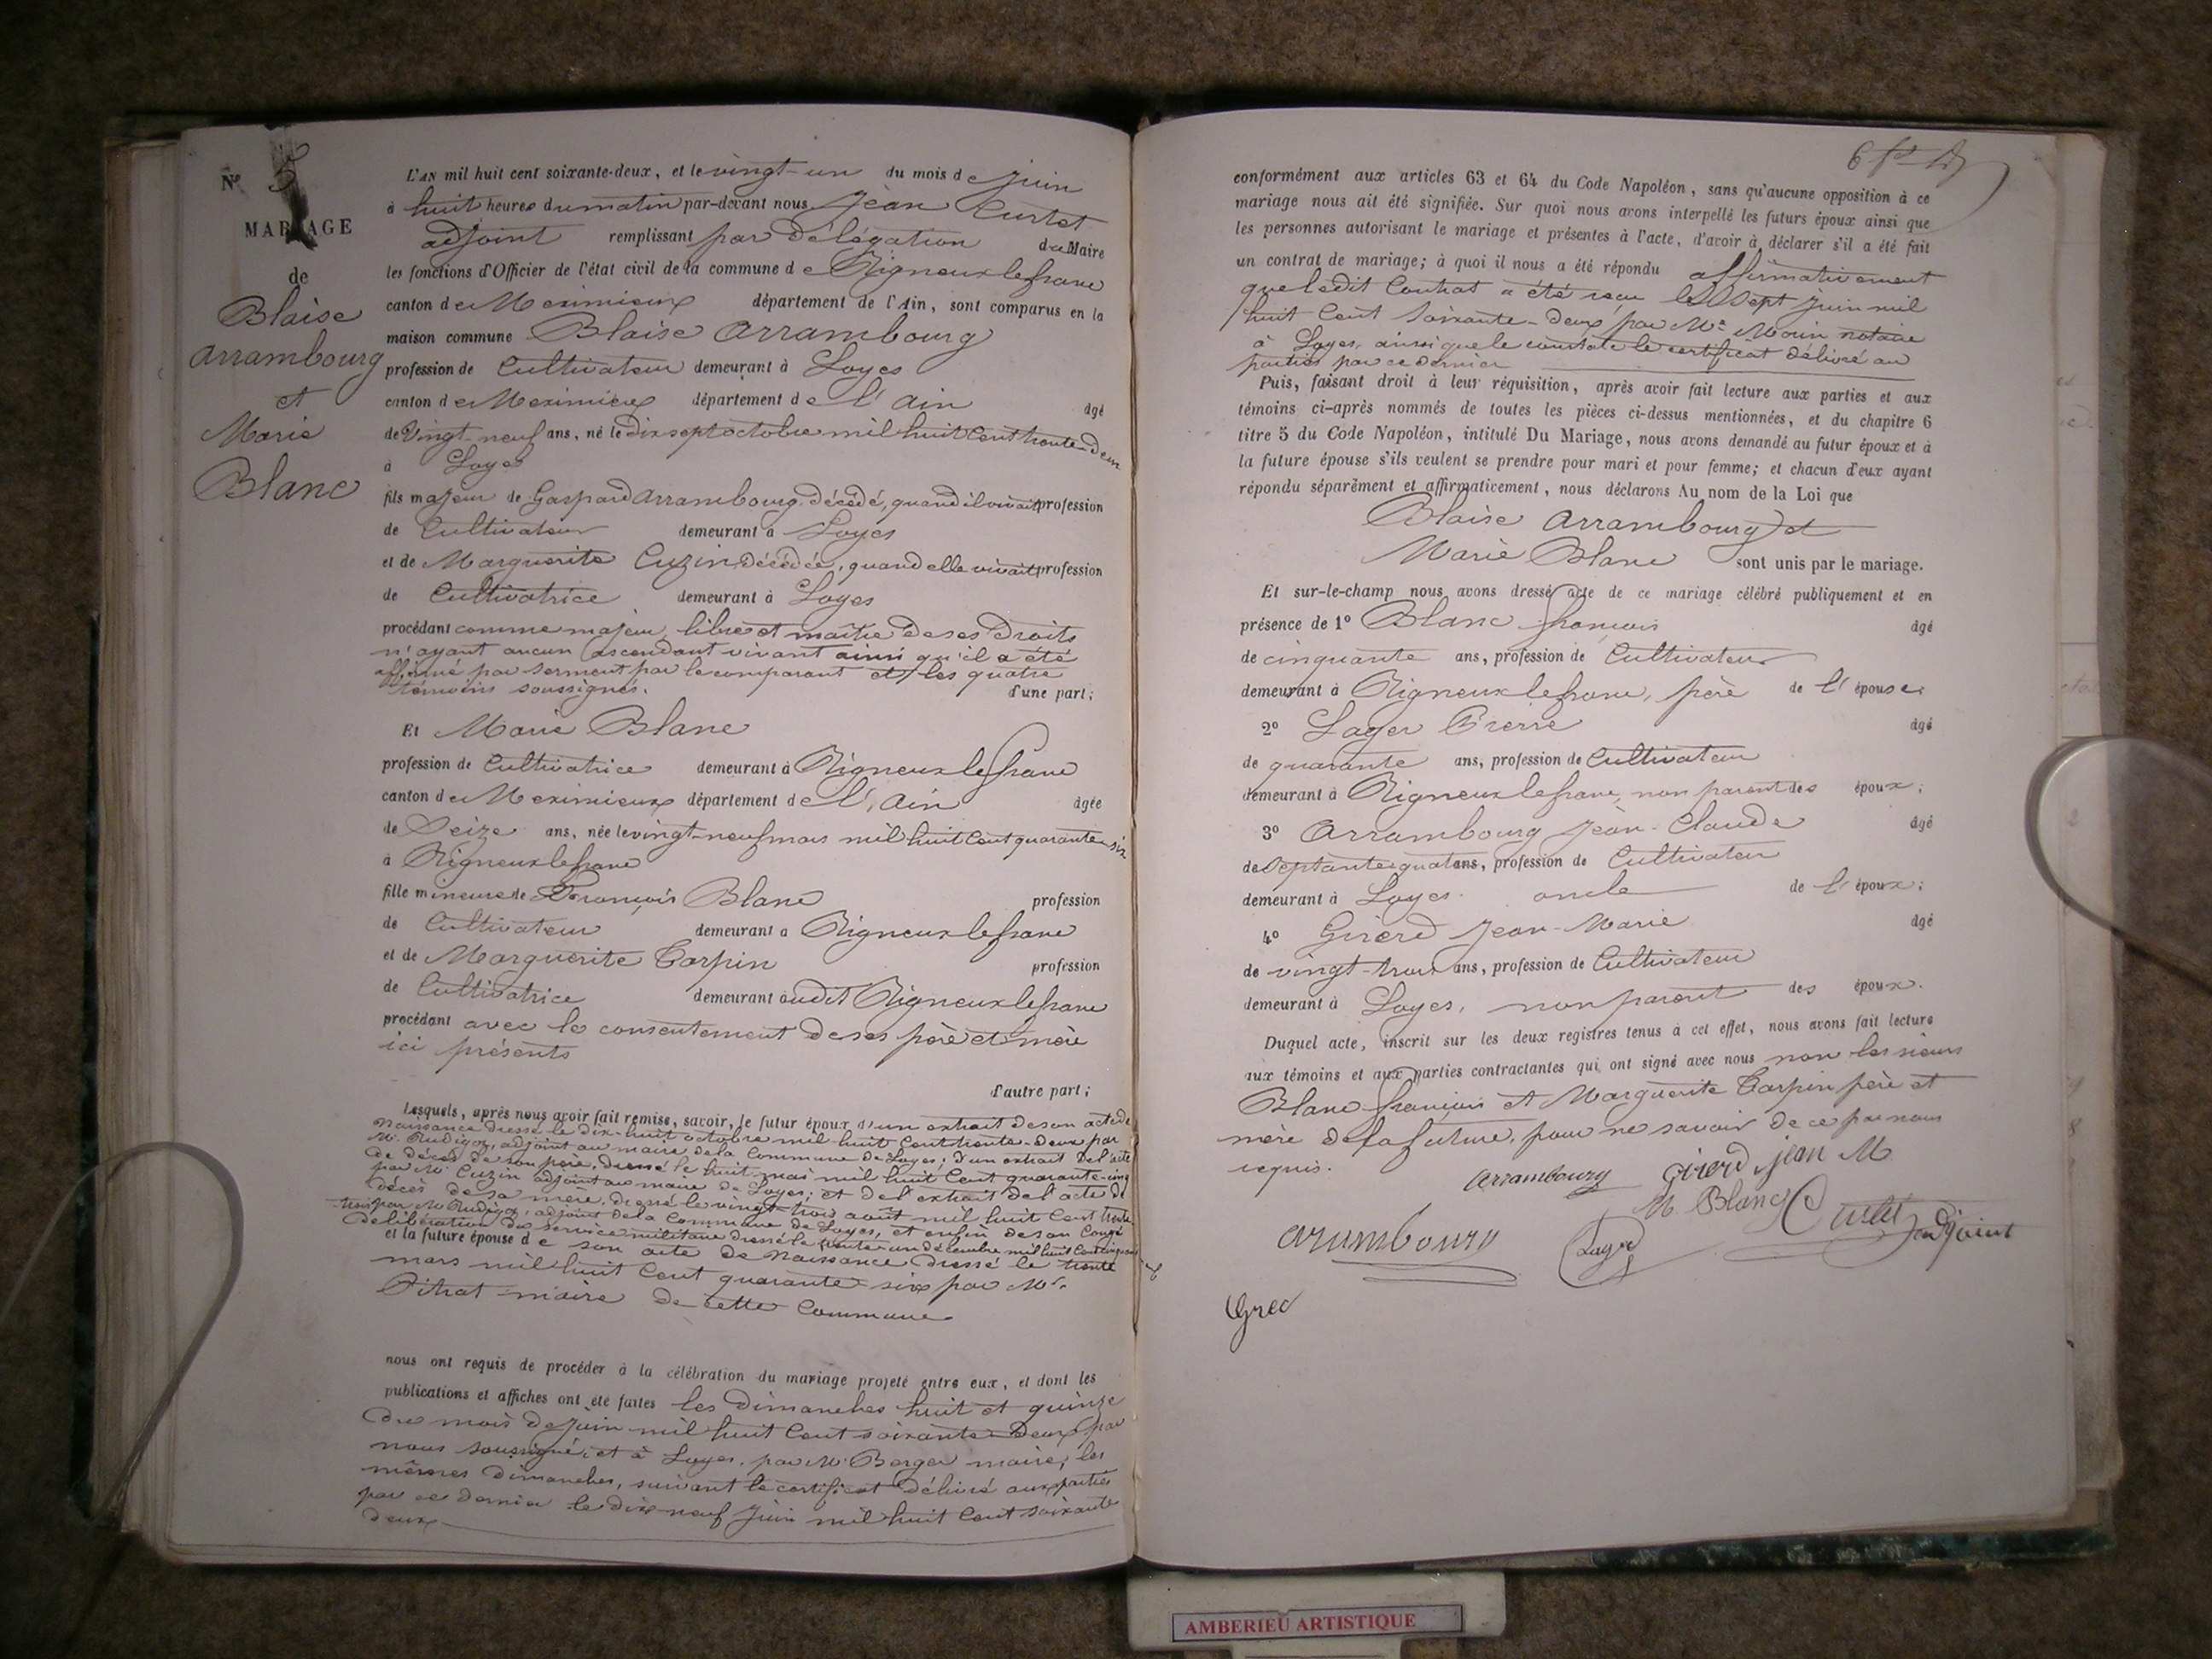 Nº 5
MARIAGE
de
Blaise
Arrambourg
et
Marie
Blanc
L'AN mil huit cent soixante-deux, et le vingt-un du mois de Juin
à huit heures du matin par-devant nous Jean Curtet
adjoint remplissant par Délégation du Maire
les fonctions d'Officier de l'état civil de la commune de Rigneux le franc
canton de Meximieux département de l'Ain, sont comparus en la
maison commune Blaise Arrambourg
profession de Cultivateur demeurant à Loyes
canton de Meximieux département de l'Ain âgé
de Vingt-neuf ans, né le dix sept octobre mil huit Cent trente Deux
à Loyes
fils majeur de Gaspard Arrambourg décédé, quand il vivait profession
de Cultivateur demeurant à Loyes
et de Marguerite Cuzin décédée, quand elle vivait profession
de Cultivatrice demeurant à Loyes
procédant comme majeur, libre et maître de ses Droits
n'ayant aucun ascendant vivant ainsi qu'il a été
affirmé par serment par le comparant et les quatre
témoins soussignés. d'une part;
Et Marie Blanc
profession de Cultivatrice demeurant à Rigneux le franc
canton de Meximieux département de l'Ain âgée
de Seize ans, née le vingt-neuf mars mil huit Cent quarante-six
à Rigneux le franc
fille mineure de François Blanc profession
de Cultivateur demeurant à Rigneux le franc
et de Marguerite Carpin profession
de Cultivatrice demeurant audit Rigneux le franc
procédant avec le consentement de ses père et mère
ici présents
d'autre part;
Lesquels, après nous avoir fait remise, savoir, le futur époux d'un extrait de son acte de
Naissance dressé le dix-huit octobre mil huit Cent trente-deux par
Mr. Rudigoz, adjoint au maire de la Commune de Loyes; d'un extrait de l'acte
de décès de son père, dressé le huit mai mil huit Cent quarante-cinq
par Mr Cuzin adjoint au maire de Loyes; et de l'extrait de l'acte de
décès de sa mère, dressé le vingt-trois août mil huit Cent trente
trois par Mr Rudigoz, adjoint de la Commune de Loyes, et enfin de son Congé
de libération du service militaire dressé le trente-un décembre mil huit Cent
et la future épouse de son acte de Naissance dressé le trente
mars mil huit Cent quarante-six par Mr.
Pitrat maire de cette Commune
nous ont requis de procéder à la célébration du mariage projeté entre eux, et dont les
publications et affiches ont été faites les dimanches huit et quinze
du mois de Juin mil huit Cent soixante-Deux par
nous soussigné, et à Loyes, par Mr. Berger maire, les
mêmes dimanches, suivant le certificat délivré aux parties
par ce dernier le dix-neuf Juin mil huit Cent soixante
deux
conformément aux articles 63 et 64 du Code Napoléon, sans qu'aucune opposition à ce
mariage nous ait été signifiée. Sur quoi nous avons interpellé les futurs époux ainsi que
les personnes autorisant le mariage et présentes à l'acte, d'avoir à déclarer s'il a été fait
un contrat de mariage; à quoi il nous a été répondu affirmativement
que ledit Contrat a été reçu le Sept Juin mil
huit Cent soixante-deux par Me Morin notaire
à Loyes, ainsi que le constate le certificat délivré au
parties par ce dernier
Puis, faisant droit à leur réquisition, après avoir fait lecture aux parties et aux
témoins ci-après nommés de toutes les pièces ci-dessus mentionnées, et du chapitre 6
titre 5 du Code Napoléon, intitulé Du Mariage, nous avons demandé au futur époux et à
la future épouse s'ils veulent se prendre pour mari et pour femme; et chacun d'eux ayant
répondu séparément et affirmativement, nous déclarons Au nom de la Loi que
Blaise Arrambourg et
Marie Blanc sont unis par le mariage.
Et sur-le-champ nous avons dressé acte de ce mariage célébré publiquement et en
présence de 1º Blanc françois âgé
de cinquante ans, profession de Cultivateur
demeurant à Rigneux le franc, père de l'épouse;
2º Lager Pierre âgé
de quarante ans, profession de Cultivateur
demeurant à Rigneux le franc, non parent des époux;
3º Arrambourg Jean-Claude âgé
de septante quat ans, profession de Cultivateur
demeurant à Loyes. oncle de l'époux;
4º Girerd Jean-Marie âgé
de vingt-trois ans, profession de Cultivateur
demeurant à Loyes, non parent des époux.
Duquel acte, inscrit sur les deux registres tenus à cet effet, nous avons fait lecture
aux témoins et aux parties contractantes qui ont signé avec nous non les sieurs
Blanc françois et Marguerite Carpin père et
mère de la future, pour ne savoir de ce par nous
requis.
Arrambourg Girerd jean M
M. Blanc Curtet adjoint
arambourg Lager
AMBERIEU ARTISTIQUE